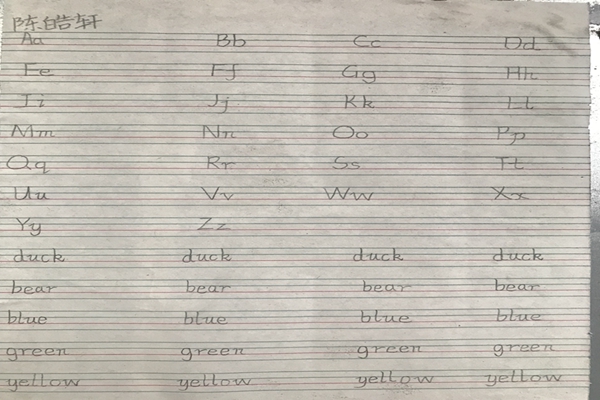 陈皓轩
Aa Bb Cc Dd
Ee Ff Gg Hh
Ii Jj Kk Ll
Mm Nn Oo Pp
Qq Rr Ss Tt
Uu Vv Ww Xx
Yy Zz
duck duck duck duck
bear bear bear bear
blue blue blue blue
green green green green
yellow yellow yellow yellow